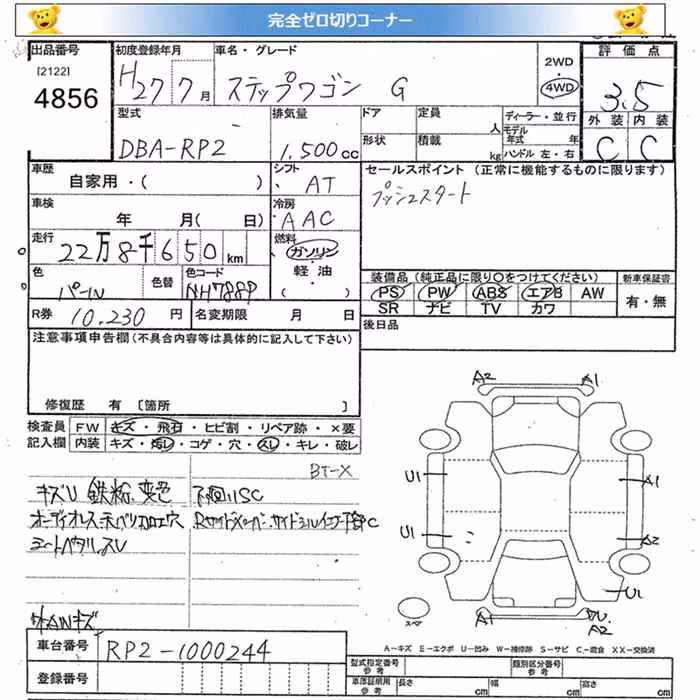 完全ゼロ切りコーナー
出品番号 初度登録年月 車名・グレード 2WD 評価点
[2122] H27年 7月 ステップワゴン G 4WD 3.5
4856
型式 排気量 ドア 定員 人 ディーラー・並行 外装 内装
DBA-RP2 1,500cc 形状 積載 kg モデル年式 年 C C
ハンドル 左・右
車歴 シフト セールスポイント (正常に機能するものに限ります)
自家用・( ) AT プッシュスタート
車検 冷房
年 月( 日) AAC
走行 燃料
22万8千650km ガソリン
色 色替 色コード 軽油
パール NH788P ( )
装備品 (純正品に限り○をつけてください) 新車保証書
PS PW ABS エアB AW 有・無
SR ナビ TV カワ
R券 10,230円 名変期限 月 日 後日品
注意事項申告欄(不具合内容等は具体的に記入して下さい)
修復歴 有 [箇所 ]
検査員 FW キズ・飛石・ヒビ割・リペア跡・×要
記入欄 内装 キズ・汚レ・コゲ・穴・スレ・キレ・破レ
BT-X
キズU 鉄粉、変色 下廻りSC
オーディオレス
シートヘタリ、スレ
キズ
A2 A1
U1 A1
U1 A2
U1
A1 A2
スペア
車台番号 RP2-1000244
登録番号
A-キズ E-エクボ U-凹み W-補修跡 S-サビ C-腐食 XX-交換済
型式指定番号 参考 類別区分番号 参考
車庫証明用 参考 長さ cm 幅 cm 高さ cm